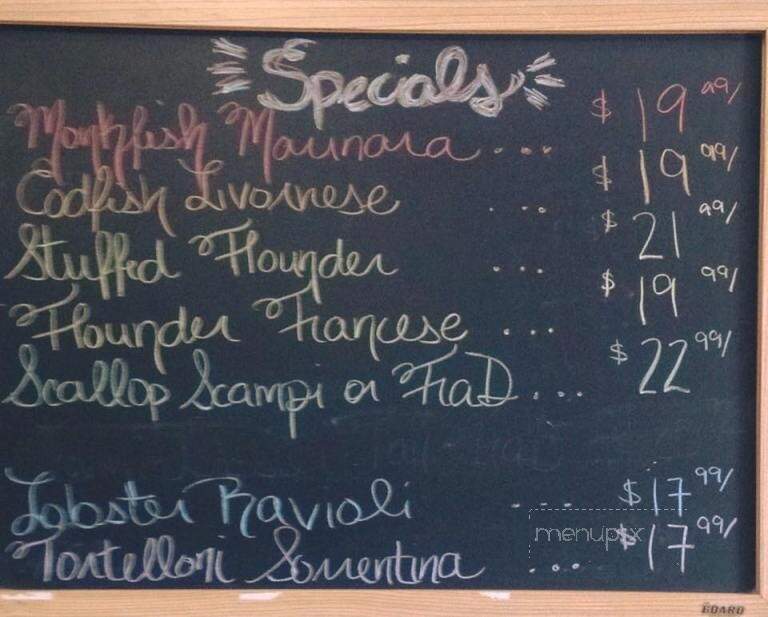 Specials
Monkfish Marinara .... $19 99/
Codfish Livornese ... $19 99/
Stuffed Flounder ... $21 99/
Flounder Francese ... $19 99/
Scallop Scampi or FraD ... $22 99/
Lobster Ravioli .... $17 99/
Tortelloni Sorrentina .... $17 99/
menupix
BOARD